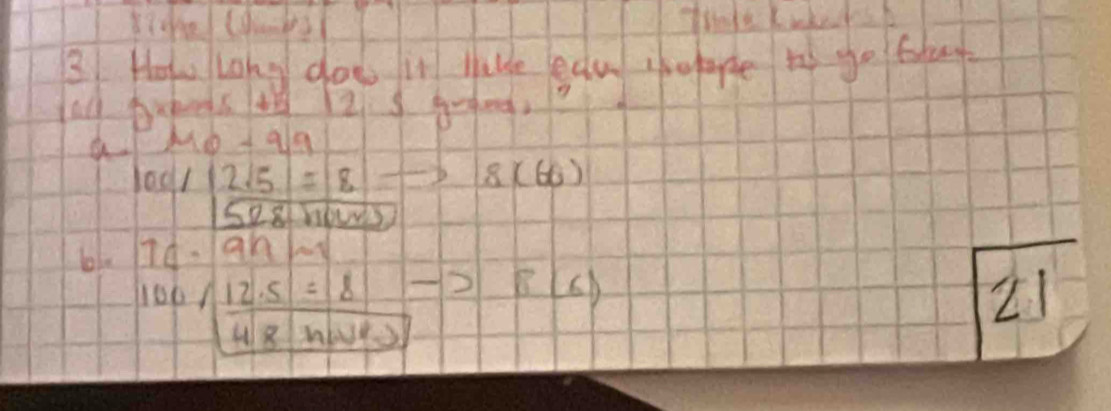 Time (hours)
3) How long does it take each isotope to go from
100 grams to 12.5 grams?
a. Mo-99
100/12.5 = 8 → 8(66)
528 hours
b. Tc-99m
100/12.5 = 8 → 8(6)
48 hours
21